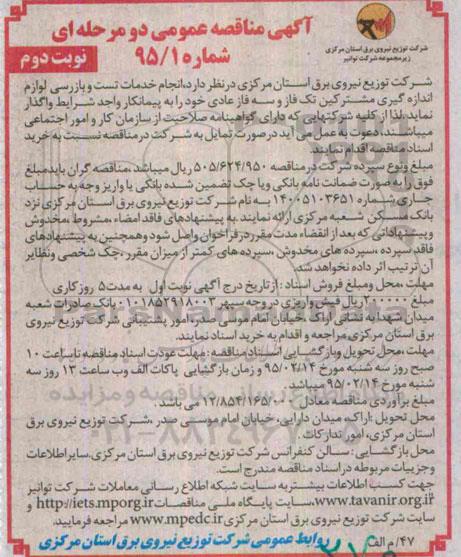 آگهی مناقصه عمومی دو مرحله ای
شماره ۹۵/۱
نوبت دوم
شرکت توزیع نیروی برق استان مرکزی
زیرمجموعه شرکت توانیر
شرکت توزیع نیروی برق استان مرکزی در نظر دارد، انجام خدمات تست و بازرسی لوازم
اندازه گیری مشترکین تک فاز و سه فاز عادی خود را به پیمانکار واجد شرایط واگذار
نماید، لذا از کلیه شرکتهایی که دارای گواهینامه صلاحیت از سازمان کار و امور اجتماعی
میباشند، دعوت به عمل می آید در صورت تمایل به شرکت در مناقصه نسبت به خرید
اسناد مناقصه اقدام نمایند.
مبلغ و نوع سپرده شرکت در مناقصه ۵۰۵/۶۲۴/۹۵۰ ریال میباشد، مناقصه گران باید مبلغ
فوق را به صورت ضمانت نامه بانکی و یا چک تضمین شده بانکی یا واریز وجه به حساب
جاری شماره ۱۴۰۰۵۱۰۳۶۵۱ به نام شرکت توزیع نیروی برق استان مرکزی نزد
بانک مسکن شعبه مرکزی ارائه نمایند. به پیشنهادهای فاقد امضاء، مشروط، مخدوش
و پیشنهاداتی که بعد از انقضاء مدت مقرر در فراخوان واصل شود و همچنین به پیشنهادهای
فاقد سپرده، سپرده های مخدوش، سپرده های کمتر از میزان مقرر، چک شخصی و نظایر
آن ترتیب اثر داده نخواهد شد.
مهلت، محل و مبلغ فروش اسناد: از تاریخ درج آگهی نوبت اول به مدت ۵ روز کاری
مبلغ ریال فیش واریزی در وجه سپهر ۰۱۰۱۸۵۲۹۱۸۰۰۳ بانک صادرات شعبه
میدان شهدا به نشانی اراک، خیابان امام موسی صدر، امور پشتیبانی شرکت توزیع نیروی
برق استان مرکزی مراجعه و اقدام به خرید اسناد نمایند.
مهلت، محل تحویل و بازگشایی اسناد مناقصه: مهلت عودت اسناد مناقصه تا ساعت ۱۰
صبح روز سه شنبه مورخ ۹۵/۰۲/۱۴ و زمان بازگشایی پاکات الف و ب ساعت ۱۳ روز سه
شنبه مورخ ۹۵/۰۲/۱۴ میباشد.
مبلغ برآوردی مناقصه معادل ۱۲/۸۵۴/۱۶۵/۰۰۰ می باشد.
محل تحویل: اراک، میدان دارایی، خیابان امام موسی صدر، شرکت توزیع نیروی برق
استان مرکزی، امور تدارکات.
محل بازگشایی: سالن کنفرانس شرکت توزیع نیروی برق استان مرکزی، سایر اطلاعات
و جزییات مربوطه در اسناد مناقصه مندرج است.
جهت کسب اطلاعات بیشتر به سایت شبکه اطلاع رسانی معاملات شرکت توانیر
www.tavanir.org.ir، سایت پایگاه ملی مناقصات http://iets.mporg.ir و
سایت شرکت توزیع نیروی برق استان مرکزی www.mpedc.ir مراجعه فرمایید.
۴۷/م الف
روابط عمومی شرکت توزیع نیروی برق استان مرکزی